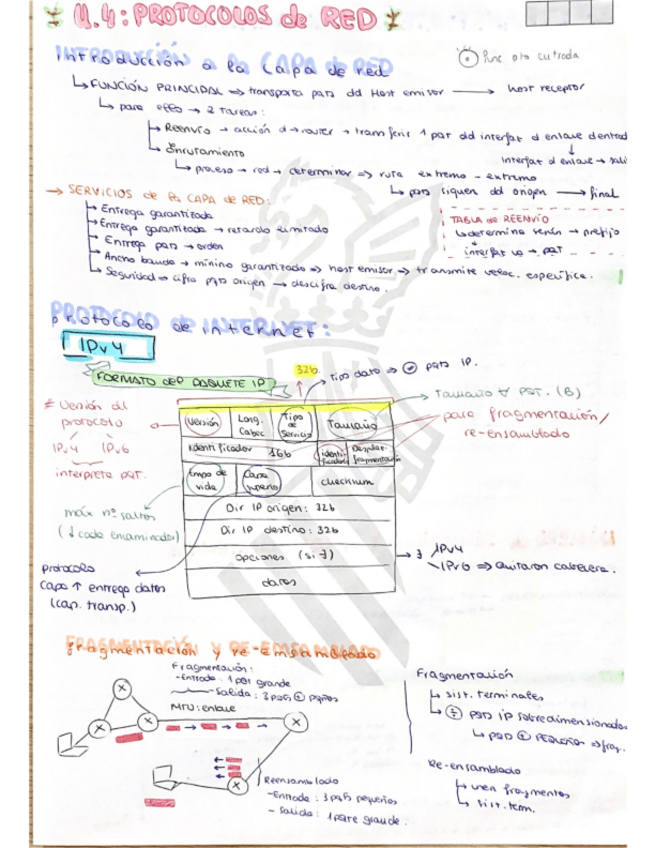 U.4: PROTOCOLOS de RED
Introducción a la Capa de RED
↳ FUNCIÓN PRINCIPAL ⇒ transporta pqts del Host emisor → host receptor
↳ para ello → 2 tareas:
↳ Reenvío → acción d → router → transferir 1 pqt del interfaz d enlace
interfaz d enlace →
↳ Enrutamiento
↳ proceso → red → determinar ⇒ ruta extremo - extremo
↳ pqts siguen del origen → final
→ SERVICIOS de la CAPA de RED:
↳ Entrega garantizada
↳ Entrega garantizada → retardo limitado
↳ Entrega pqts → orden
↳ Ancho banda → mínimo garantizado ⇒ host emisor ⇒ transmite veloc. específica.
↳ Seguridad ⇒ cifra pqts origen → descifra destino.
TABLA de REENVÍO
↳ determina según → prefijo
interfaz va → pqt
Protocolo de internet:
IPv4
FORMATO del PAQUETE IP
32b.
→ Tipo dato ⇒ pqts IP.
→ Tamaño ∀ pqt. (B)
para fragmentación/
re-ensamblado
≠ Versión del
protocolo
IPv4 IPv6
interpreta pqt.
Versión
Long. Cabec.
Tipo de Servicio
Tamaño
Identificador 16b
Checksum
Dir IP origen: 32b
Dir IP destino: 32b
opciones (si ∃)
datos
máx nº saltos
(↓ cada encaminador)
protocolo
Capa ↑ entrega datos
(Cap. transp.)
→ ∃ IPv4
IPv6 ⇒ Quitaron cabecera.
Fragmentación y re-ensamblado
Fragmentación:
-Entrada: 1 pqt grande
- Salida: 3 pqts
MTU: enlace
Reensamblado
- Entrada: 3 pqts pequeños
- Salida: 1 grande.
Fragmentación
↳ sist. terminales
↳ pqts IP sobredimensionados
↳ pqts pequeños ⇒ frag.
Re-ensamblado
↳ unen fragmentos
↳ sist. term.